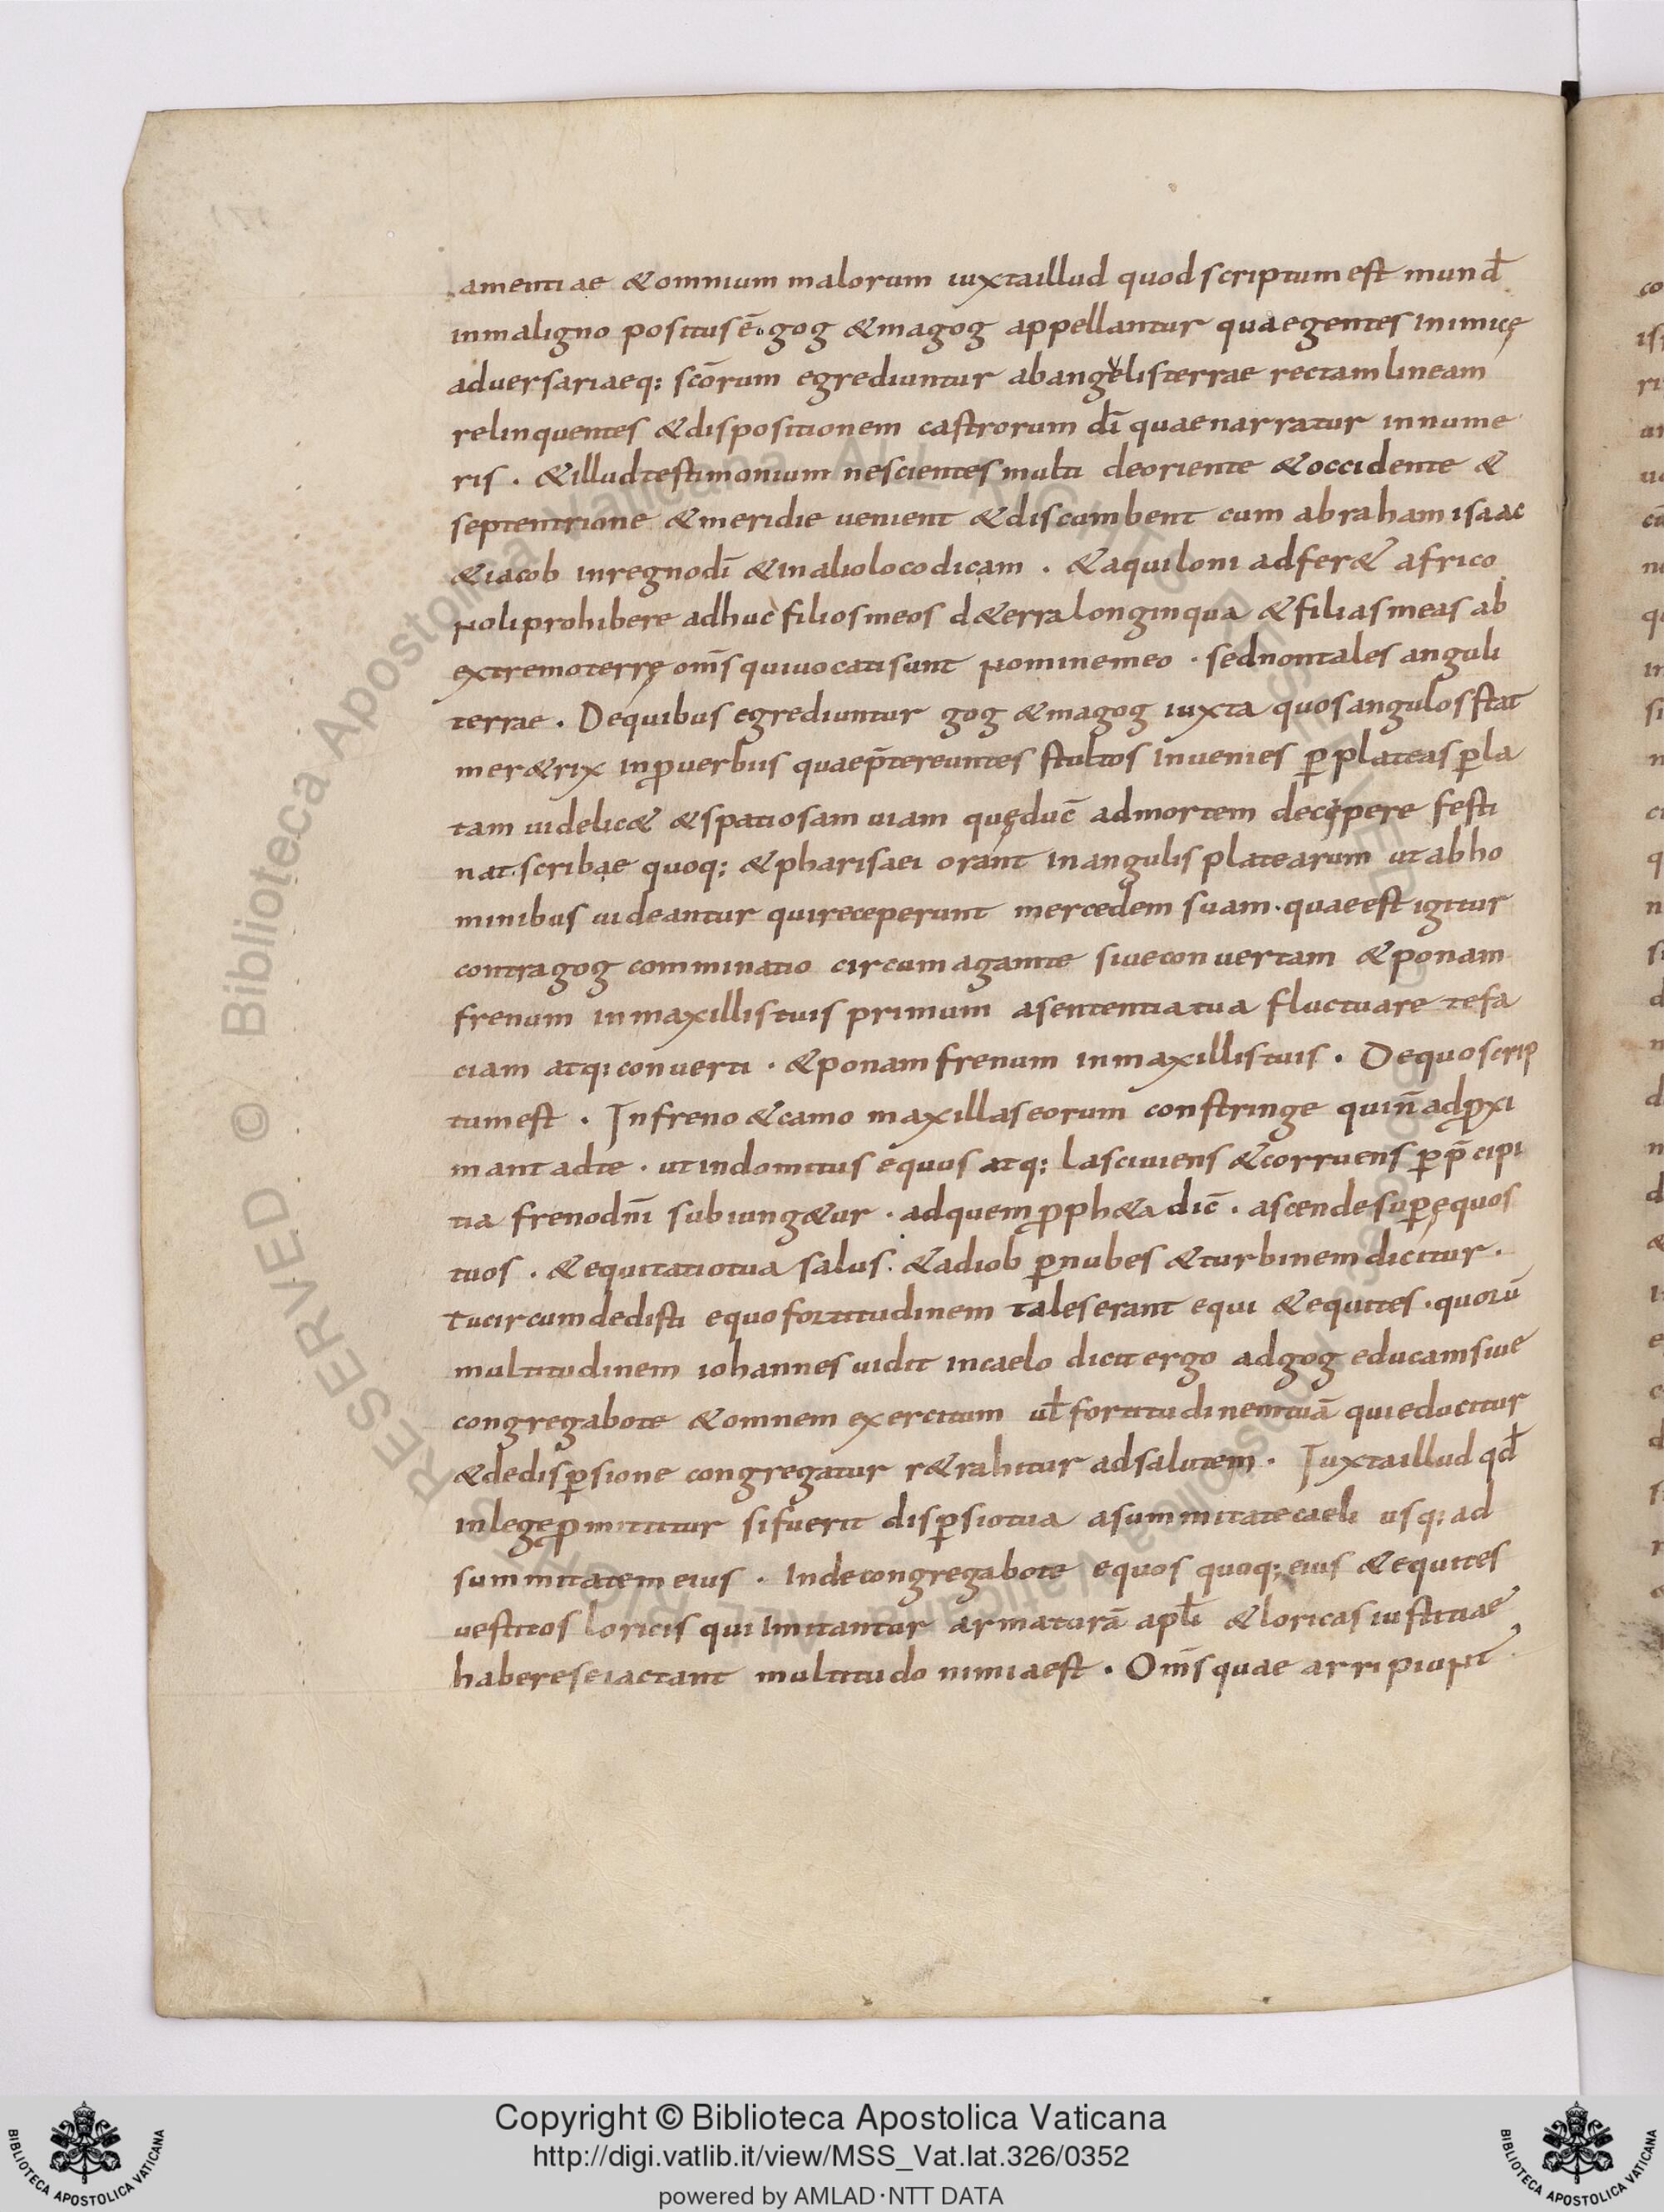 amentiae & omnium malorum iuxta illud quod scriptum est mund̄
in maligno positus ē. gog & magog appellantur quae gentes inimicę
adversariaeq; scōrum egrediuntur ab angelis terrae rectam lineam
relinquentes & dispositionem castrorum dī quae narratur in nume
ris . & illud testimonium nescientes multi de oriente & occidente &
septentrione & meridie uenient & discumbent cum abraham isaac
& iacob in regno dī & in alio loco dicam . & aquiloni adfer & africo
Noli prohibere adhuc filios meos d&erra longinqua & filias meas ab
extremo terrę om̄s qui uocati sunt Nomine meo . sed non tales anguli
terrae . De quibus egrediuntur gog & magog iuxta quos angulos stat
mer&rix in ꝓuerbiis quae p̄tereuntes stultos inuenies ꝑ plateas ꝑ la
tam uidelic& & spatiosam uiam quę duc̄ ad mortem decępere festi
nat. scribae quoq; & pharisaei orant in angulis platearum ut ab ho
minibus uideantur qui receperunt mercedem suam . quae est igitur
contra gog comminatio circumagam te siue conuertam & ponam
frenum in maxillis tuis primum a sententia tua fluctuare te fa
ciam atq; conuerti . & ponam frenum in maxillis tuis . De quo scrip
tum est . In freno & camo maxillas eorum constringe qui n̄ adꝓxi
mant ad te . ut indomitus equus atq; lasciuiens & corruens ꝑ p̄cipi
tia freno dn̄i subiung&ur . ad quem ꝓph&a dic̄ . ascende suꝑ equos
tuos . & equitatio tua salus . & ad iob ꝑ nubes & turbinem dicitur .
Tu circumdedisti equo fortitudinem tales erant equi & equites . quorū
multitudinem iohannes uidit in caelo dicit ergo ad gog educam siue
congregabo te & omnem exercitum ul̄ fortitudinem tuā qui educitur
& de disꝑsione congregatur r&rahitur ad salutem . Iuxta illud qd̄
in lege ꝓmittitur si fuerit disꝑsio tua a summitate caeli usq; ad
summitatem eius . Inde congregabo te equos quoq; eius & equites
uestitos loricis qui imitantur armaturā apl̄i & loricas iustitiae
habere se iactant multitudo nimia est . Om̄s quae arripiuNt
Copyright © Biblioteca Apostolica Vaticana
http://digi.vatlib.it/view/MSS_Vat.lat.326/0352
powered by AMLAD·NTT DATA